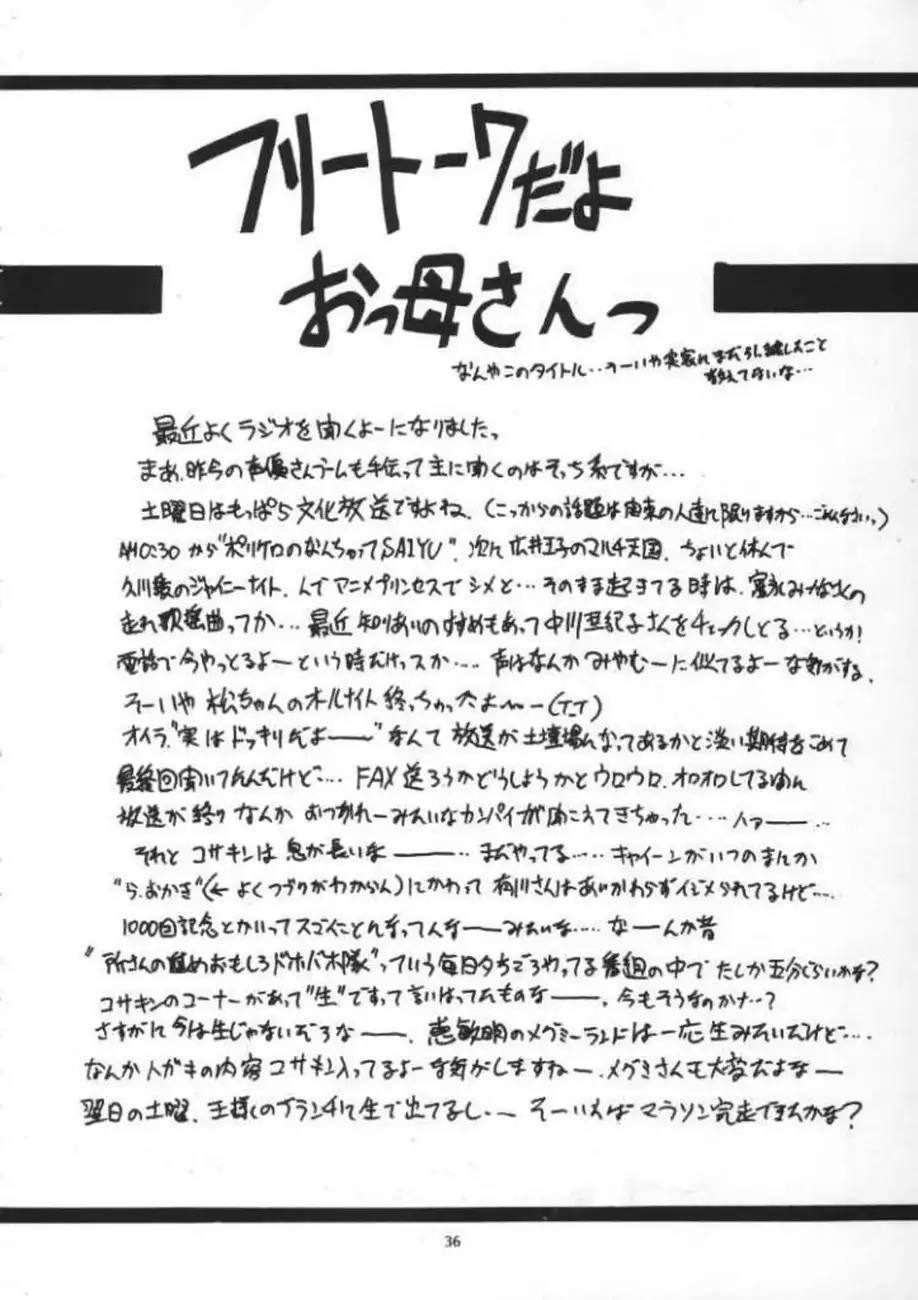 フリートークだよ
おっ母さんっ
なんやこのタイトル‥そーいや実家にまだ引っ越したこと
教えてないな…
最近よくラジオを聞くよーになりました。
まあ、昨今の声優さんブームも手伝って主に聞くのはそっち系ですが…
土曜日はもっぱら文化放送ですよね、(こっからの話題は関東の人達に限りますから…ごめんなさいっ)
AM0:30から"ポリケロのなんちゃってSAIYU"、次に広井王子のマルチ天国、ちょいと休んで
久川綾のシャイニーナイト、んでアニメプリンセスでシメと…そのまま起きてる時は、富永みーなさんの
走れ歌謡曲ってか…最近知りあいのすすめもあって中川亜紀子さんをチェックしとる…というか!
電話で今やっとるよーという時だけっスか…. 声はなんかみやむーに似てるよーな気がする。
そーいや松ちゃんのオールナイト終っちゃったよ〜ー(T-T)
オイラ、"実はドッキリだよーー"なんて放送が土壇場になってあるかと淡い期待をこめて
最終回聞いてたんだけど…. FAX送ろうかどうしようかとウロウロ、オロオロしてるめに
放送が終り なんか おつかれーみたいなカンパイが聞こえてきちゃった‥‥ハァーー…
それと コサキンは息が長いなーーー‥まだやってる….. キャイーンがいつのまんか
"ら.おかき"(←よくつづりがわからん)にかわって 有川さんはあいかわらずイジメられてるけど….
1000回記念とかいってスゴイことんなってんなーーみたいな….. なーんか昔
"所さんの進めおもしろドホバホ隊"っていう毎日夕方ごろやってる番組の中でたしか五分ぐらいかな?
コサキンのコーナーがあって"生"ですって言いはってたものなーー、今もそうなのかナ…?
さすがに今は生じゃないだろなーー、恵敏明のメグミーランドは一応生みたいだけど‥‥
なんかハガキの内容コサキン入ってるよーな気がしますねー、メグミさんも大変だよなー
翌日の土曜、王様のブランチにて生で出てるし‥〜 そーいえばマラソン完走できたかな?
36